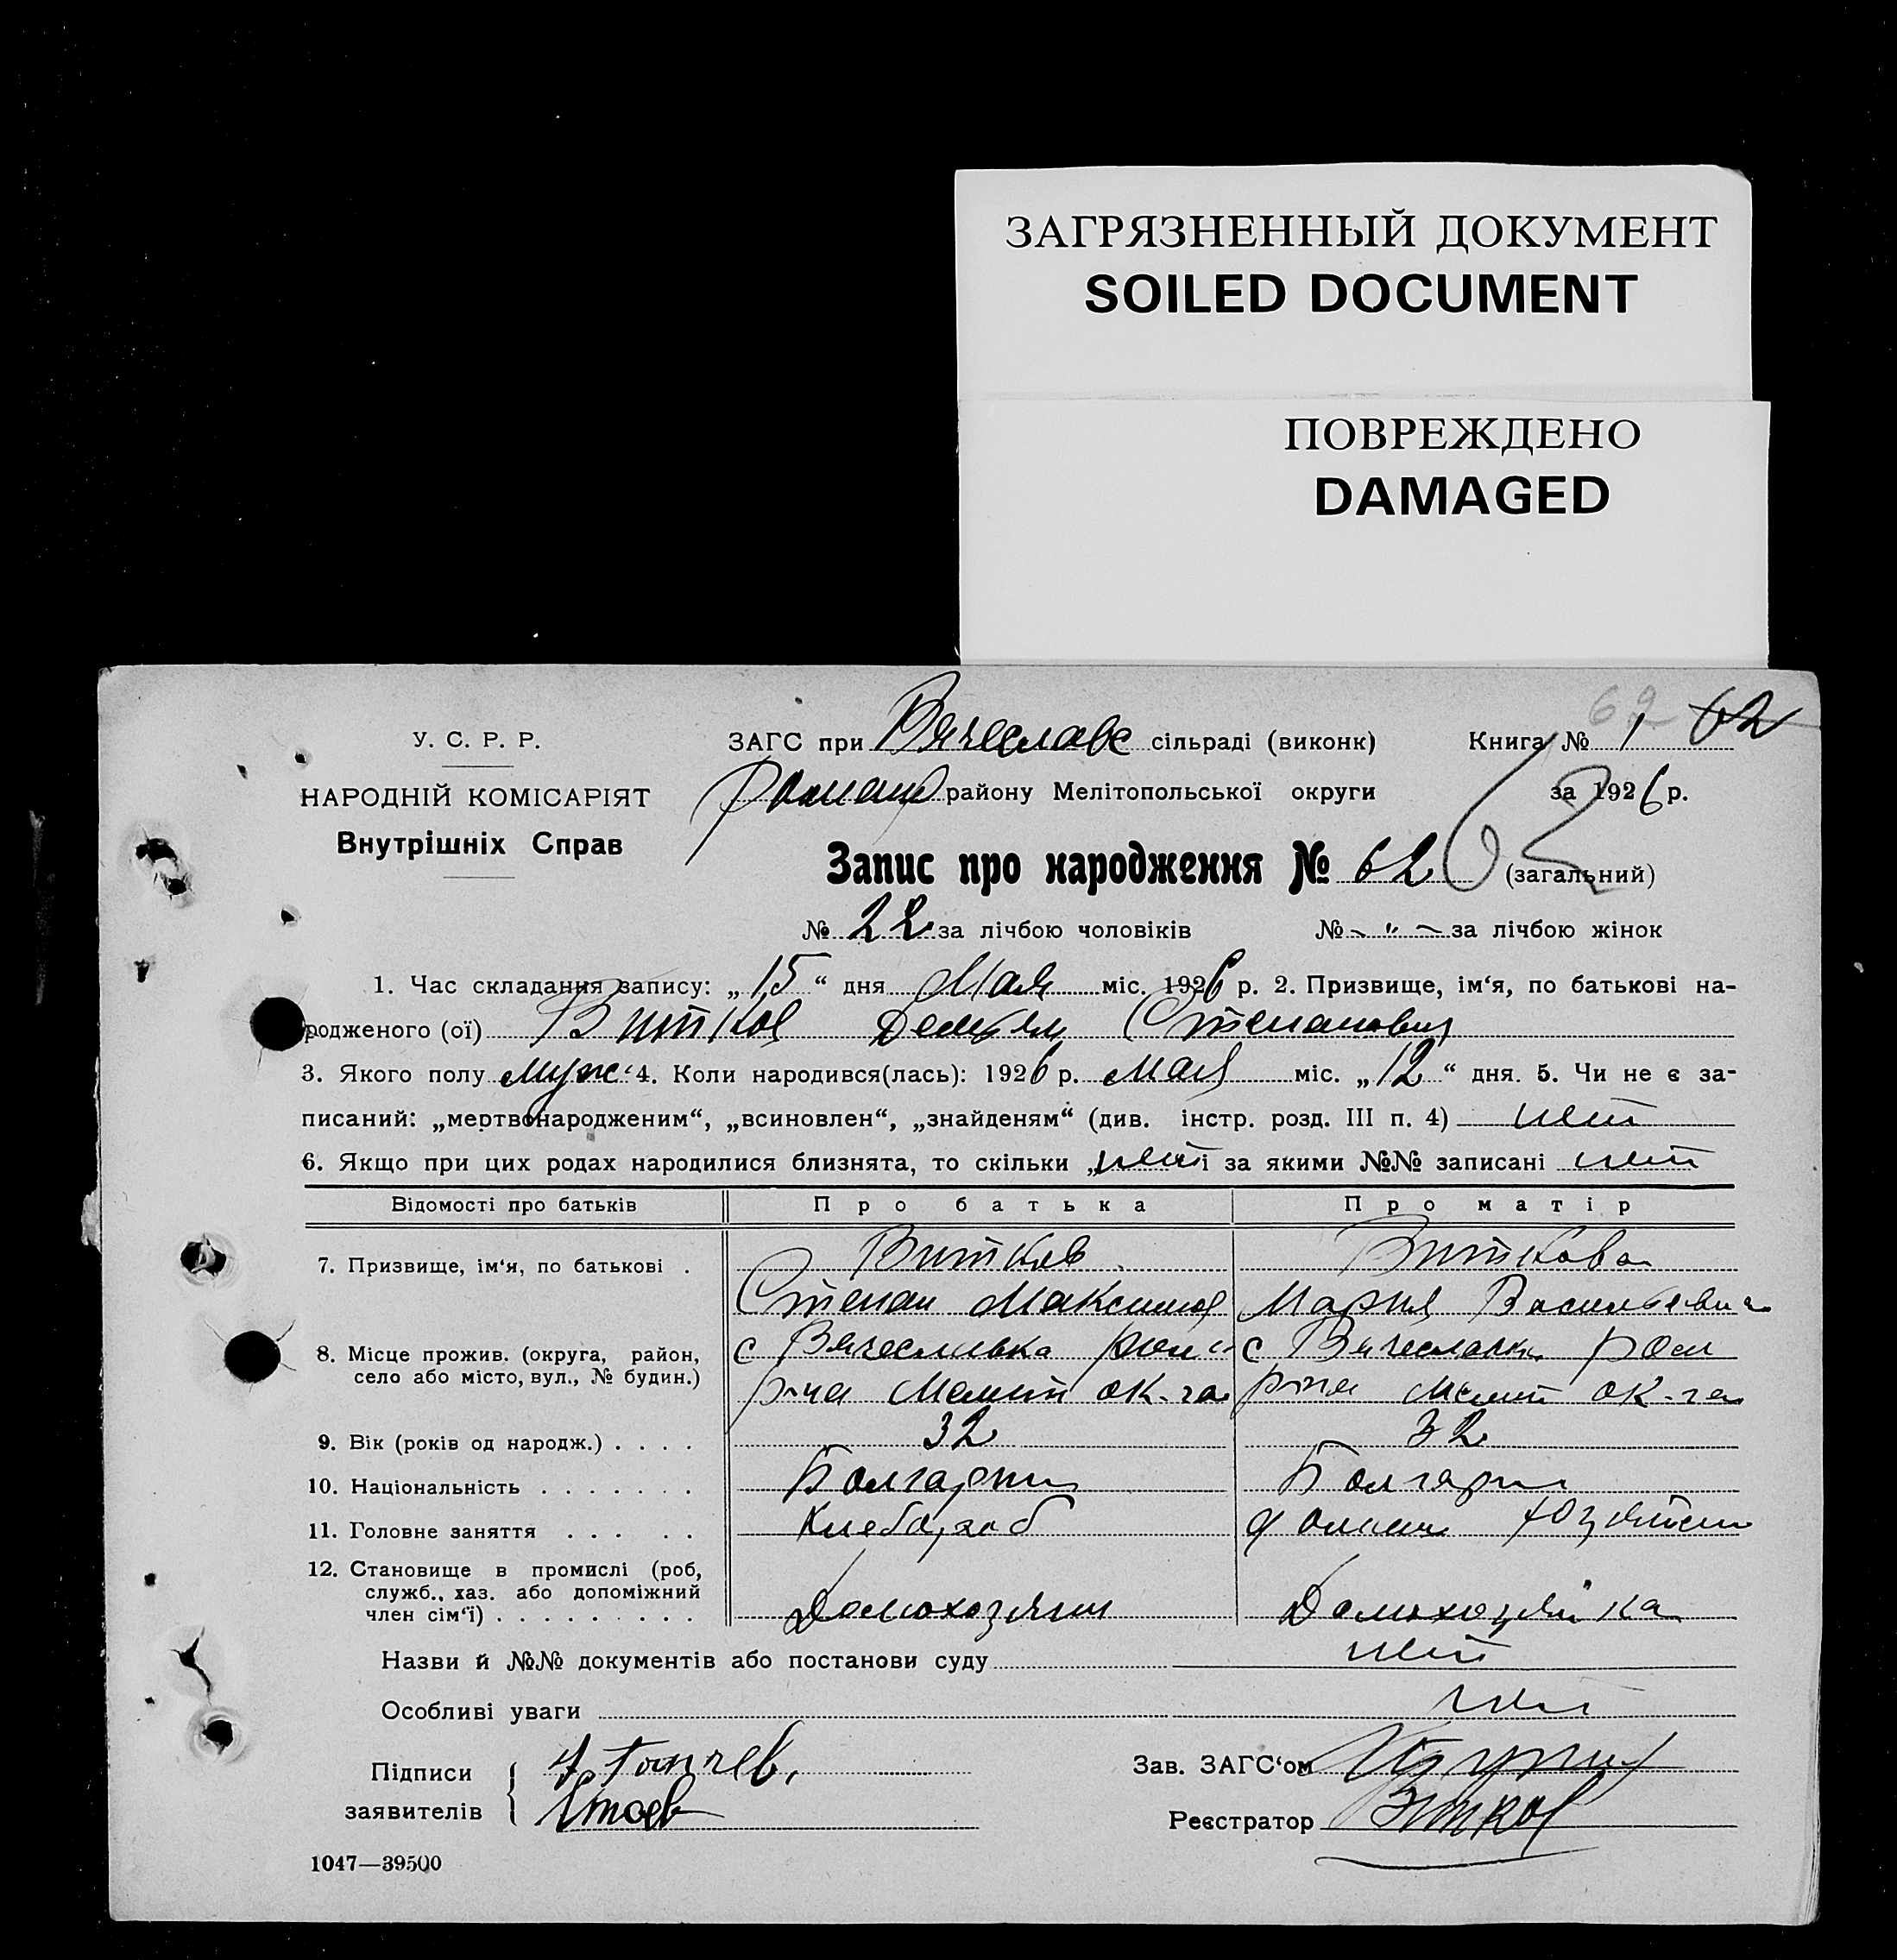 ЗАГРЯЗНЕННЫЙ ДОКУМЕНТ
SOILED DOCUMENT
ПОВРЕЖДЕНО
DAMAGED
62 62
У. С. Р. Р. ЗАГС при Вячеславс сільраді (виконк) Книга № 1
НАРОДНІЙ КОМІСАРІЯТ района Мелітопольської округи за 1926 р.
Внутрішніх Справ
Запис про народження № 62 62 (загальний)
№ 22 за лічбою чоловіків № – " – за лічбою жінок
1. Час складання запису: „ 15 “ дня Мая міс. 1926 р. 2. Призвище, ім‘я, по батькові на-
родженого (ої) Витков Демьян Степанович
3. Якого полу муж. 4. Коли народився(лась): 1926 р. Мая міс. „ 12 “ дня. 5. Чи не є за-
писаний: „мертвонародженим“, „всиновлен“, „знайденям“ (див. інстр. розд. III п. 4) нет
6. Якщо при цих родах народилися близнята, то скільки „нет і за якими №№ записані нет
Відомості про батьків Про батька Про матір
7. Призвище, ім‘я, по батькові . Витков Виткова
Степан Максимов Мария Васильевна
8. Місце прожив. (округа, район, с Вячеславка Ром с Вячеславка Ром
село або місто, вул., № будин.) р-на Мелит ок-га р-на Мелит ок-га
9. Вік (років од народж.) . . . . 32 32
10. Національність . . . . . . . Болгарин Болгарин
11. Головне заняття . . . . . Хлебораб
12. Становище в промислі (роб,
служб., хаз. або допоміжний
член сім‘ї) . . . . . . . . . Домохозяин Домохозяйка
Назви й №№ документів або постанови суду нет
Особливі уваги нет
Підписи Зав. ЗАГС‘ом
заявителів Реєстратор Витков
1047—39500